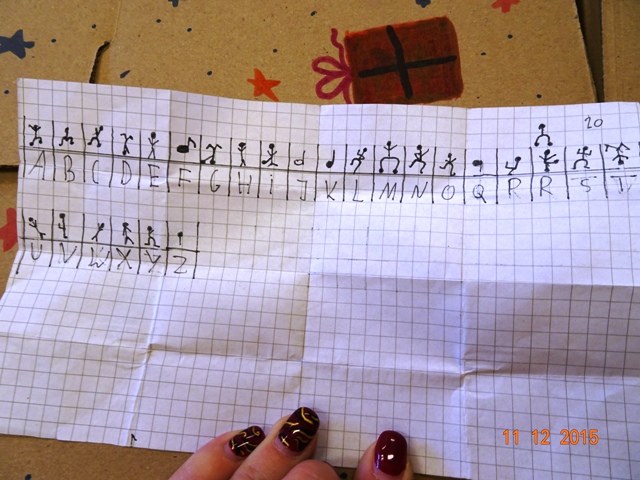 20
A B C D E F G H i J K L M N O Q R R S T
U V W X Y Z
11 12 2015